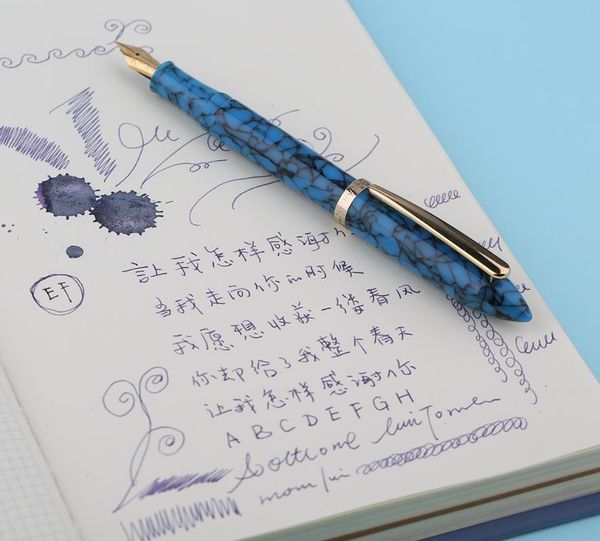 EF
讓我怎样感谢你
当我走向你的时候
我愿想收获一缕春风
你却给了我整个春天
让我怎样感谢你
A B C D E F G H